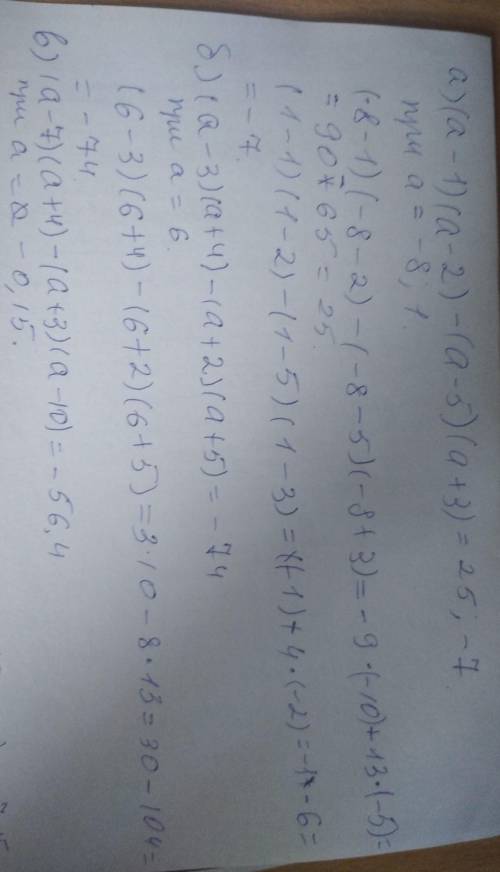 а) (a - 1)(a - 2) - (a - 5)(a + 3) = 25; - 7
при a = -8; 1.
(-8 - 1)(-8 - 2) - (-8 - 5)(-8 + 3) = -9 · (-10) + 13 · (-5) =
= 90 - 65 = 25.
(1 - 1)(1 - 2) - (1 - 5)(1 - 3) = (-1) + 4 · (-2) = -1 - 6 =
= - 7.
б) (a - 3)(a + 4) - (a + 2)(a + 5) = - 74
при a = 6
(6 - 3)(6 + 4) - (6 + 2)(6 + 5) = 3 · 10 - 8 · 13 = 30 - 104 =
= - 74
в) (a - 7)(a + 4) - (a + 3)(a - 10) = - 56,4
при a = - 0,15.